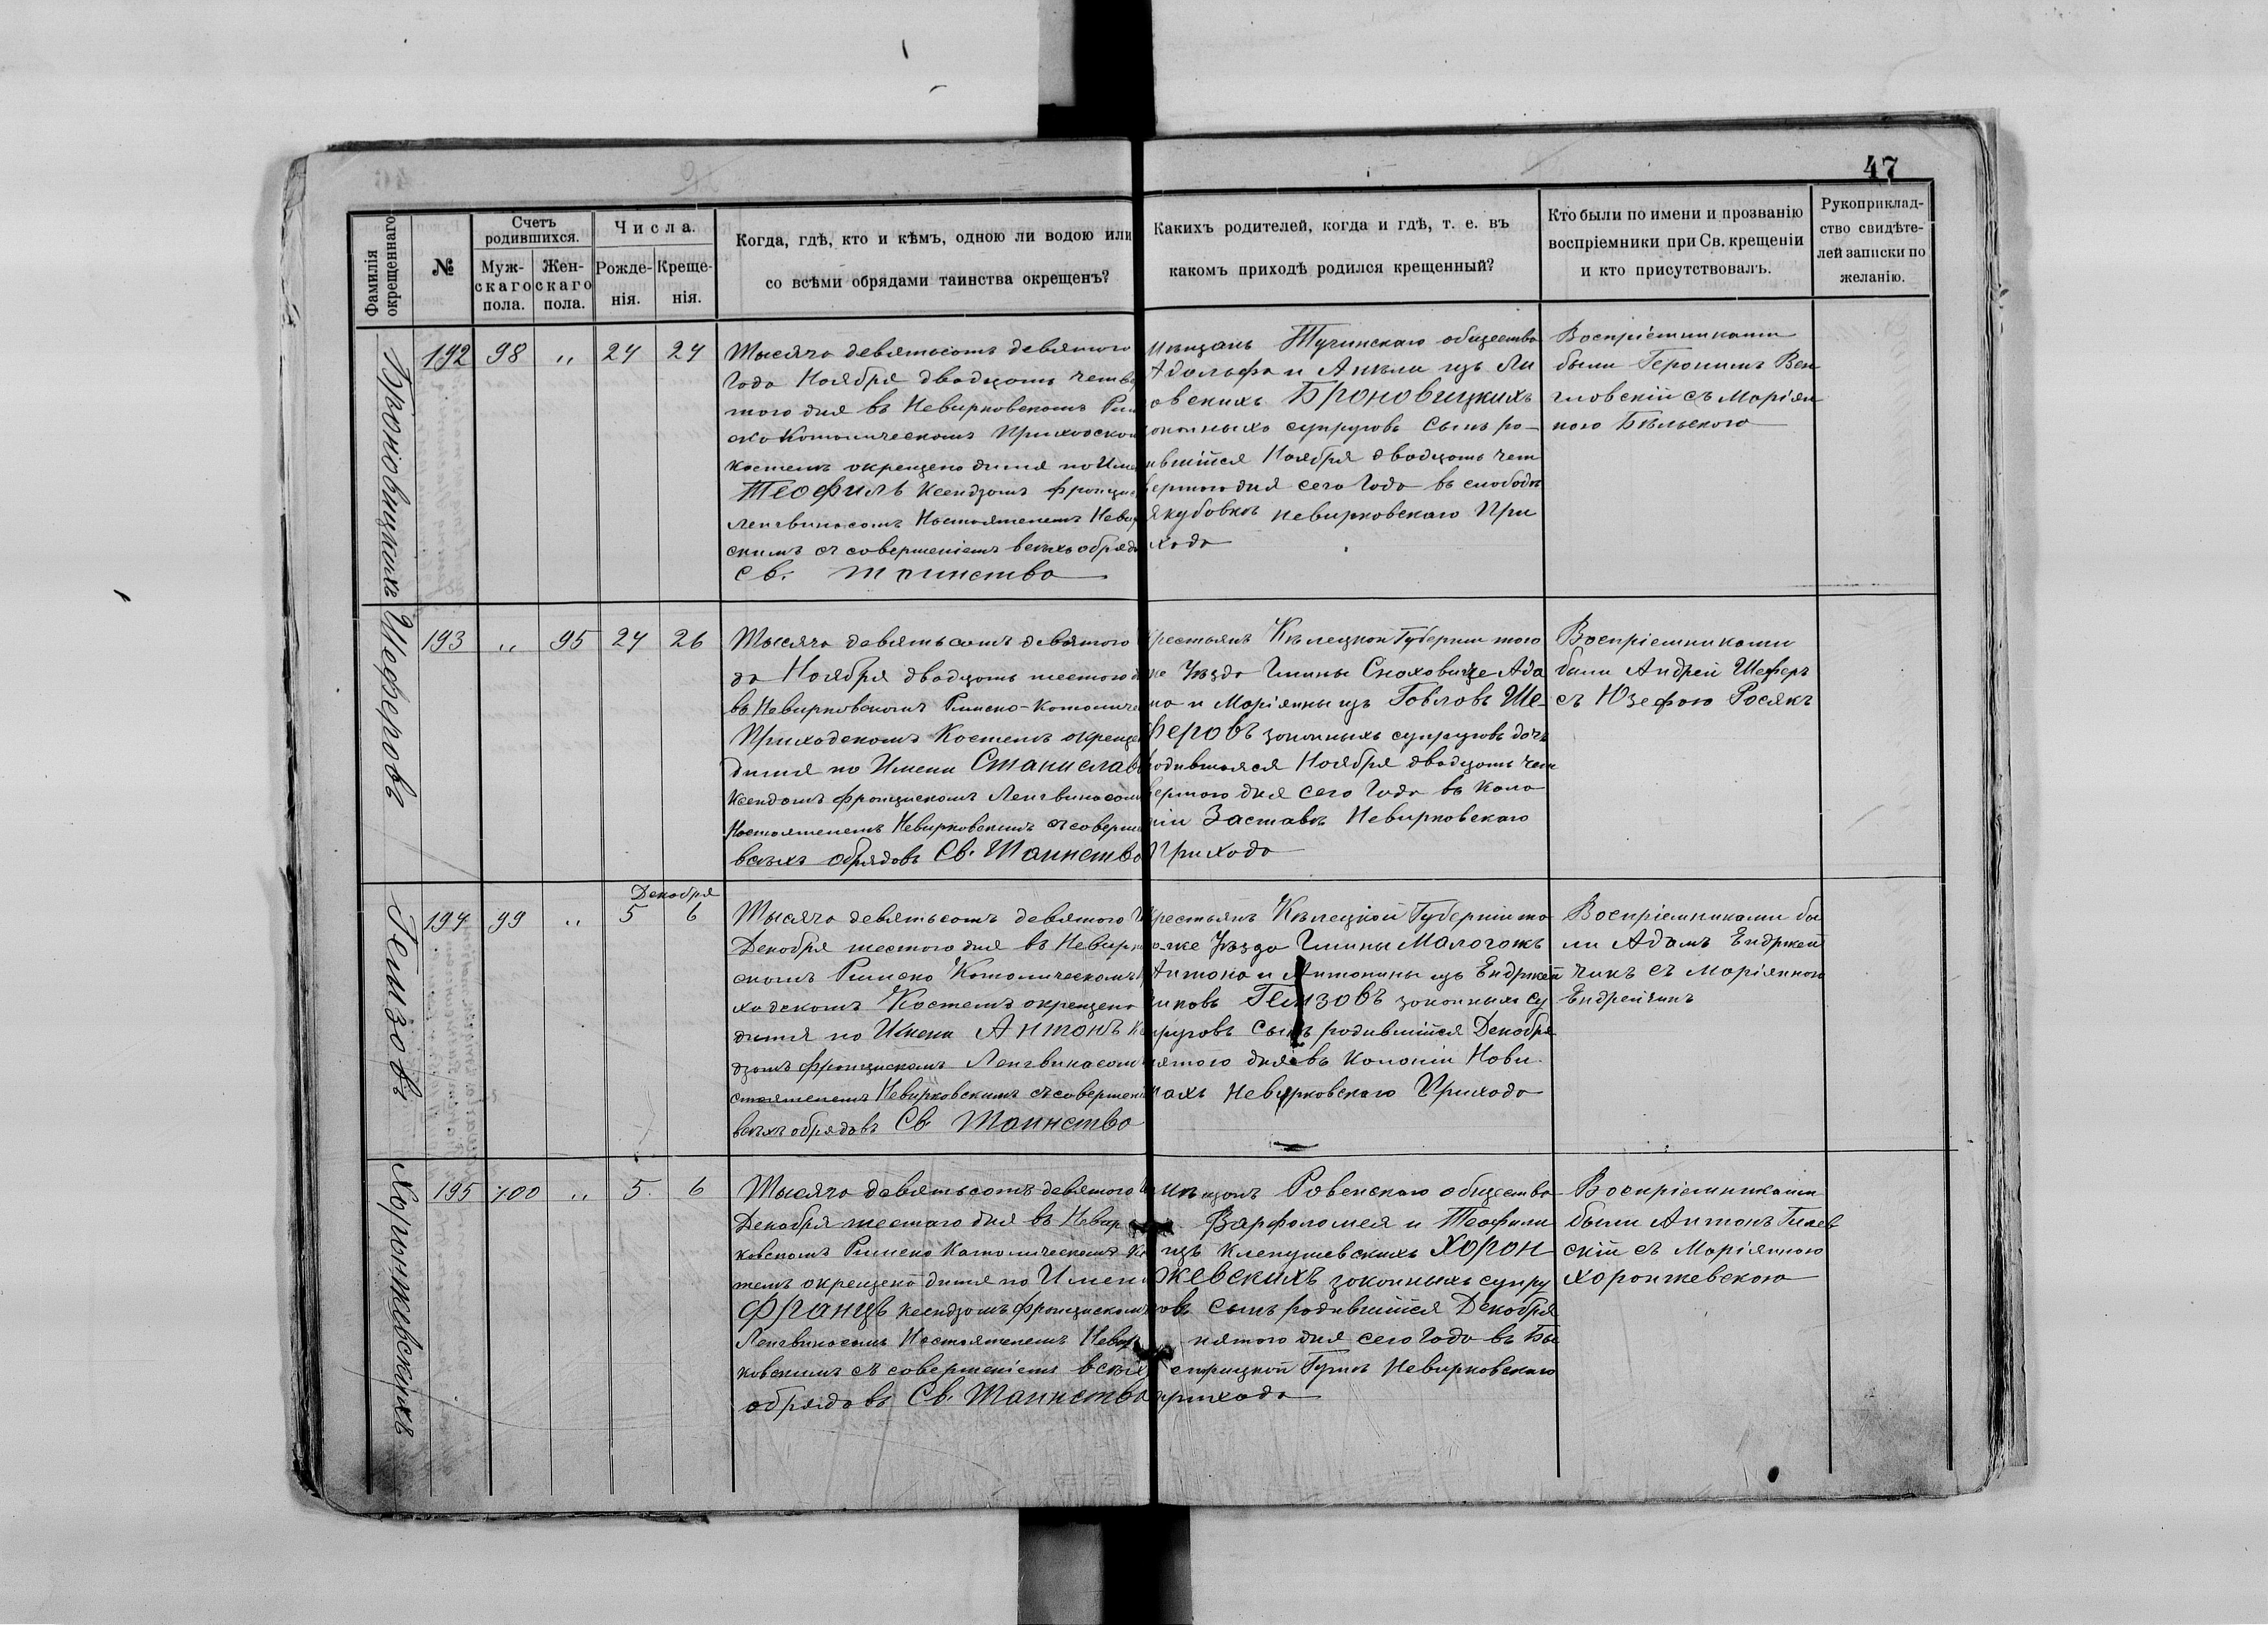 47
Фамилія окрещеннаго
№
Счетъ родившихся.
Мужскаго пола.
Женскаго пола.
Числа.
Рожденія.
Крещенія.
Когда, гдѣ, кто и кѣмъ, одною ли водою или
со всѣми обрядами таинства окрещенъ?
Какихъ родителей, когда и гдѣ, т. е. въ
какомъ приходѣ родился крещенный?
Кто были по имени и прозванію
воспріемники при Св. крещеніи
и кто присутствовалъ.
Рукоприклад-
ство свидѣте-
лей записки по
желанію.
Броновицкихъ
192 98 „ 24 24
Тысяча девятьсотъ девятого
Года Ноября двадцать четвер
того дня въ Невирковскомъ Рим
ско Католическомъ Приходском
костелѣ окрещено дитя по Име
Теофиль Ксендзомъ Францис
Ленгвинасомъ Настоятелемъ Невир
скимъ съ совершеніемъ всѣхъ обрядо
Св. таинства
мѣщанъ Тучинскаго общества
Адольфа и Анѣли изъ Ли
овскихъ Броновицкихъ
законныхъ супруговъ сынъ ро-
ившійся Ноября двадцать чет
вертого дня сего Года въ слободѣ
Якубовкѣ Невирковскаго При
хода
Воспріемниками
были Геронимъ Вен
гловскій съ Маріян
ною Бѣльскою
Шеферовъ
193 „ 95 24 26
Тысяча девятьсотъ девятого
да Ноября двадцать шестого д
въ Невирковскомъ Римско-Католиче
Приходскомъ Костелѣ окреще
дитя по Имени Станислава
Ксендзомъ Францискомъ Ленгвинасом
Настоятелемъ Невирковскимъ съ соверше
всѣхъ обрядовъ Св. Таинства
Крестьянъ Кѣлецкой Губерніи того
же Уѣзда Гмины Снаховице Ада
ма и Маріянны изъ Говловъ Ше-
феровъ законныхъ супруговъ дочь
родившаяся Ноября двадцать чет
вертого дня сего Года въ Коло
ніи Заставѣ Невирковскаго
Прихода
Воспріемниками
были Андрей Шеферъ
съ Юзефою Росякъ
Гемзовъ
Декабря
194 99 „ 5 6
Тысяча девятьсотъ девятого
Декабря шестого дня въ Невирко
скомъ Римско Католическомъ
ходскомъ Костелѣ окрещено
дитя по Имени Антонъ Ксен
дзомъ Францискомъ Ленгвинасом
стоятелемъ Невирковскимъ съ совершені
всѣхъ обрядовъ Св Таинства
Крестьянъ Кѣлецкой Губерніи то
го-же Уѣзда Гмины Малогощъ
Антона и Антонины изъ Ендржей
чиковъ Гемзовъ законныхъ су
пруговъ сынъ родившійся Декабря
пятого дня въ Колоніи Нови-
нахъ Невирковскаго Прихода
Воспріемниками бы
ли Адамъ Ендржей
чикъ съ Маріянною
Ендрейчикъ
Хоронжевскихъ
195 100 „ 5. 6
Тысяча девятьсотъ девятого
Декабря шестаго дня въ Невир
ковскомъ Римско Католическомъ Ко
телѣ окрещено дитя по Имени
Францъ ксендзомъ Францискомъ
Ленгвинасомъ Настоятелемъ Невир
ковскимъ съ совершеніемъ всѣхъ
обрядовъ Св. Таинства
мѣщанъ Ровенскаго общества
Варфоломея и Теофили
изъ Клепушевскихъ Хорон
жевскихъ законныхъ супру
овъ сынъ родившійся Декабря
пятого дня сего Года въ Бы
стрицкой Гутѣ Невирковскаго
прихода
Воспріемниками
были Антонъ
скій съ Маріянною
Хоронжевскою